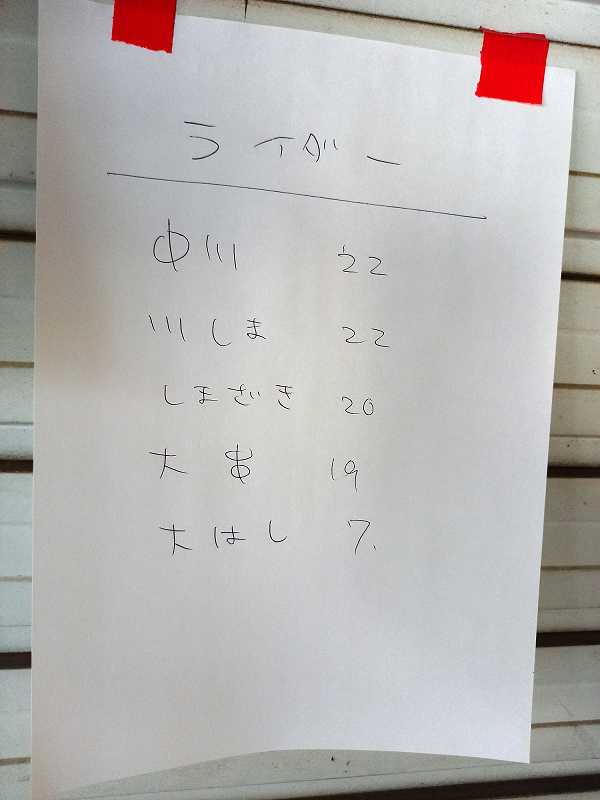 ライダー
中川 22
川しま 22
しまざき 20
大 19
大はし 7.